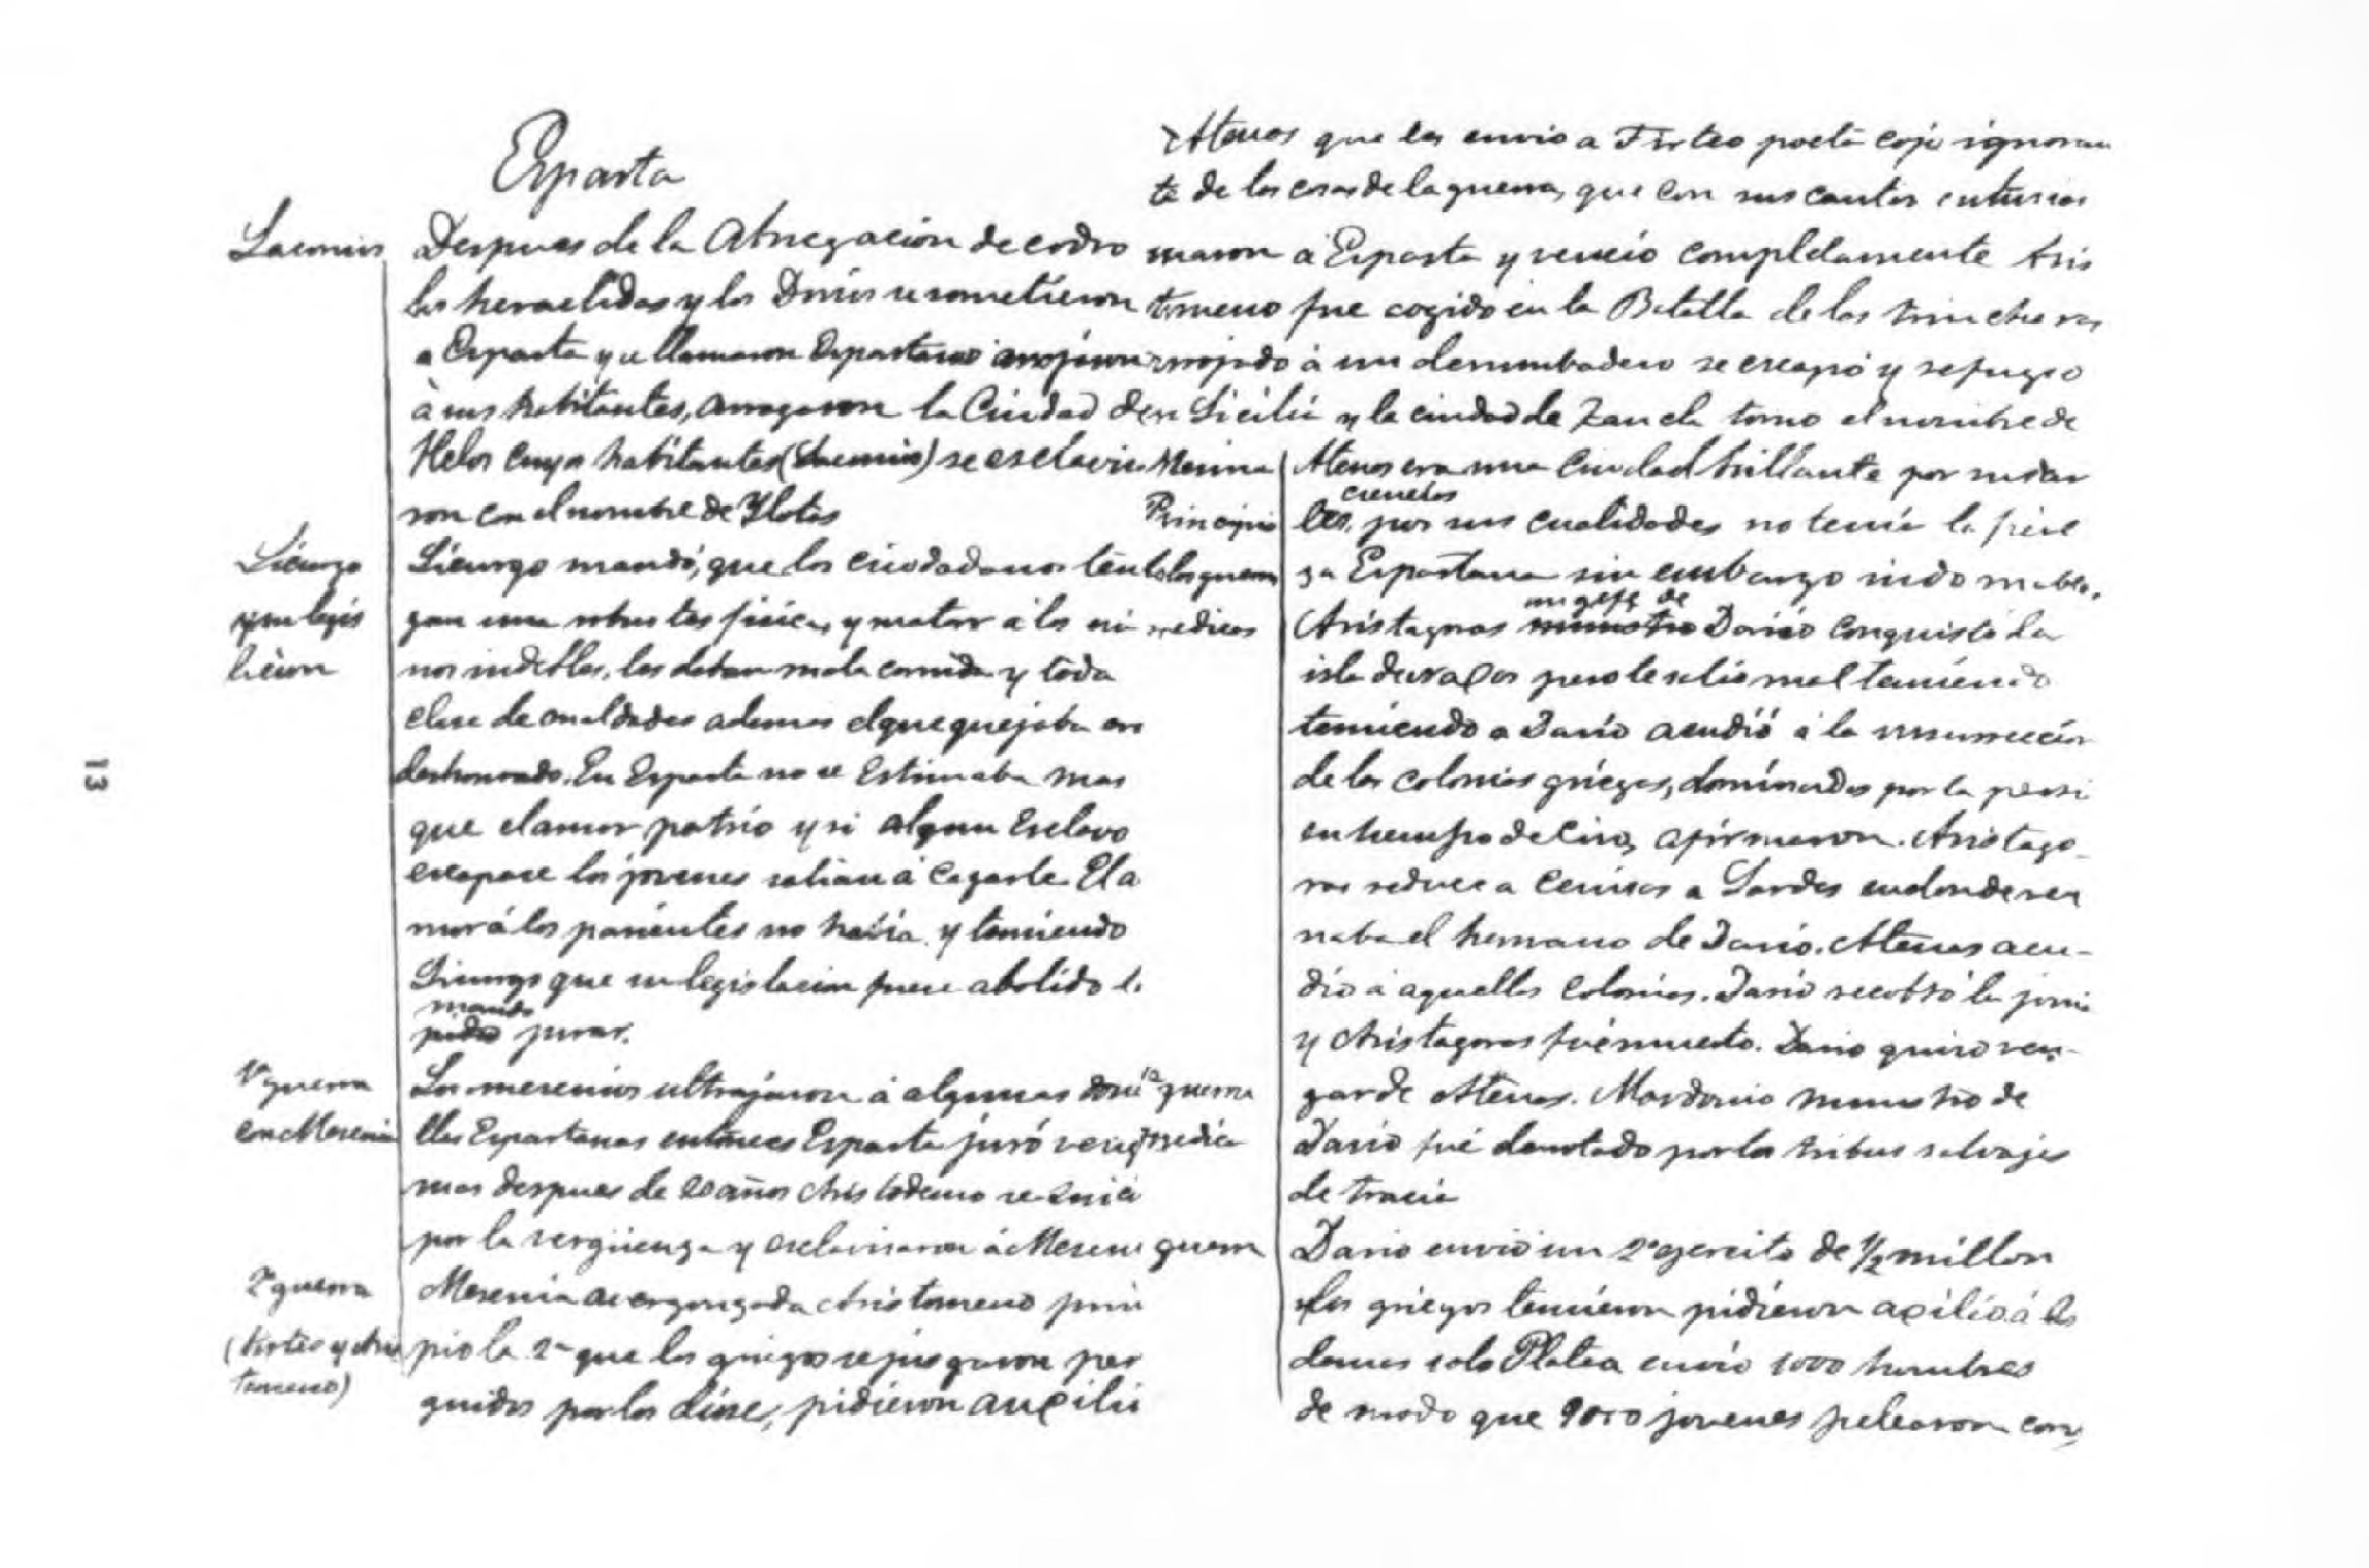 Esparta
Laconios
Despues de la Abnegación de codro
los heraclidas y los Dorios se sometieron
a Esparta y se llamaron Espartanos arrojaron
à sus habitantes, arragaron la Ciudad de
Helos cuyos habitantes (Laconios) se esclaviza
ron con el nombre de Ylotas
Licurgo
y su legis
lación
Licurgo mandó, que los ciudadanos ten
gan una robustes fisica, y matar á los ni
nos indebles, les daban mala comida y toda
clase de maldades ademas el que quejaba era
deshonrado. En Esparta no se Estimaba mas
que el amor patrio y si algun Esclavo
escapase los jovenes salian á Cazarle. El a
mor á los parientes no había y temiendo
Licurgo que su legislacion fuese abolido l.
mando
pidio jurar.
1ª guerra
con Mesenia
Los mesenios ultrajaron á algunas donce
llas Espartanas entonces Esparta juró veng
mas despues de 20 años Aristodemo se suici
por la vergüenza y esclavisaron á Meseni
2ª guerra
(Tirteo y Aris
tomeno)
Mesenia avergonzada Aristomeno prin
pio la 2ª que los griegos se jusgaron per
guidos por los dioses, pidieron aucilio
Atenas que les envio a Tirteo poeta cojo ignoran
te de las cosas de la guerra, que con sus cantos entusias
maron á Esparta y venció completamente Aris
tomeno fue cogido en la Batalla de las trincheras
arrojado á un derrumbadero se escapó y refugio
en Sicilia y la ciudad de Zancla tomo el nombre de
Mesina
Principio
de las guerras
medicas
Atenas era una Ciudad brillante por su
cruneles
por sus cualidades no tenía la
za Espartana sin embargo
un gefe de
Aristagoras ministro Darío conquistó la
isla de naxos pero le salió mal temiendo
temiendo a Darío acudió á la insurrección
de las colonias griegas, dominadas por la persi
en tiempo de Ciro, afirmaron. Aristago-
ras reduce a Cenisas a Sardes en donde rei
naba el hermano de Darío. Atenas acu-
dío á aquellas colonias. Darío recobró la jonia
y Aristagoras fué muerto. Dario quiso ven-
gar de Atenas. Mardonio ministro de
Darío fué derrotado por las tribus salvajes
de tracia
1ª guerra
medica
guerra
Dario envió un 2º ejercito de ½ millon
los griegos temieron pidieron aucilio á los
demas solo Platea envío 1000 hombres
de modo que 9000 jovenes pelearon con
13